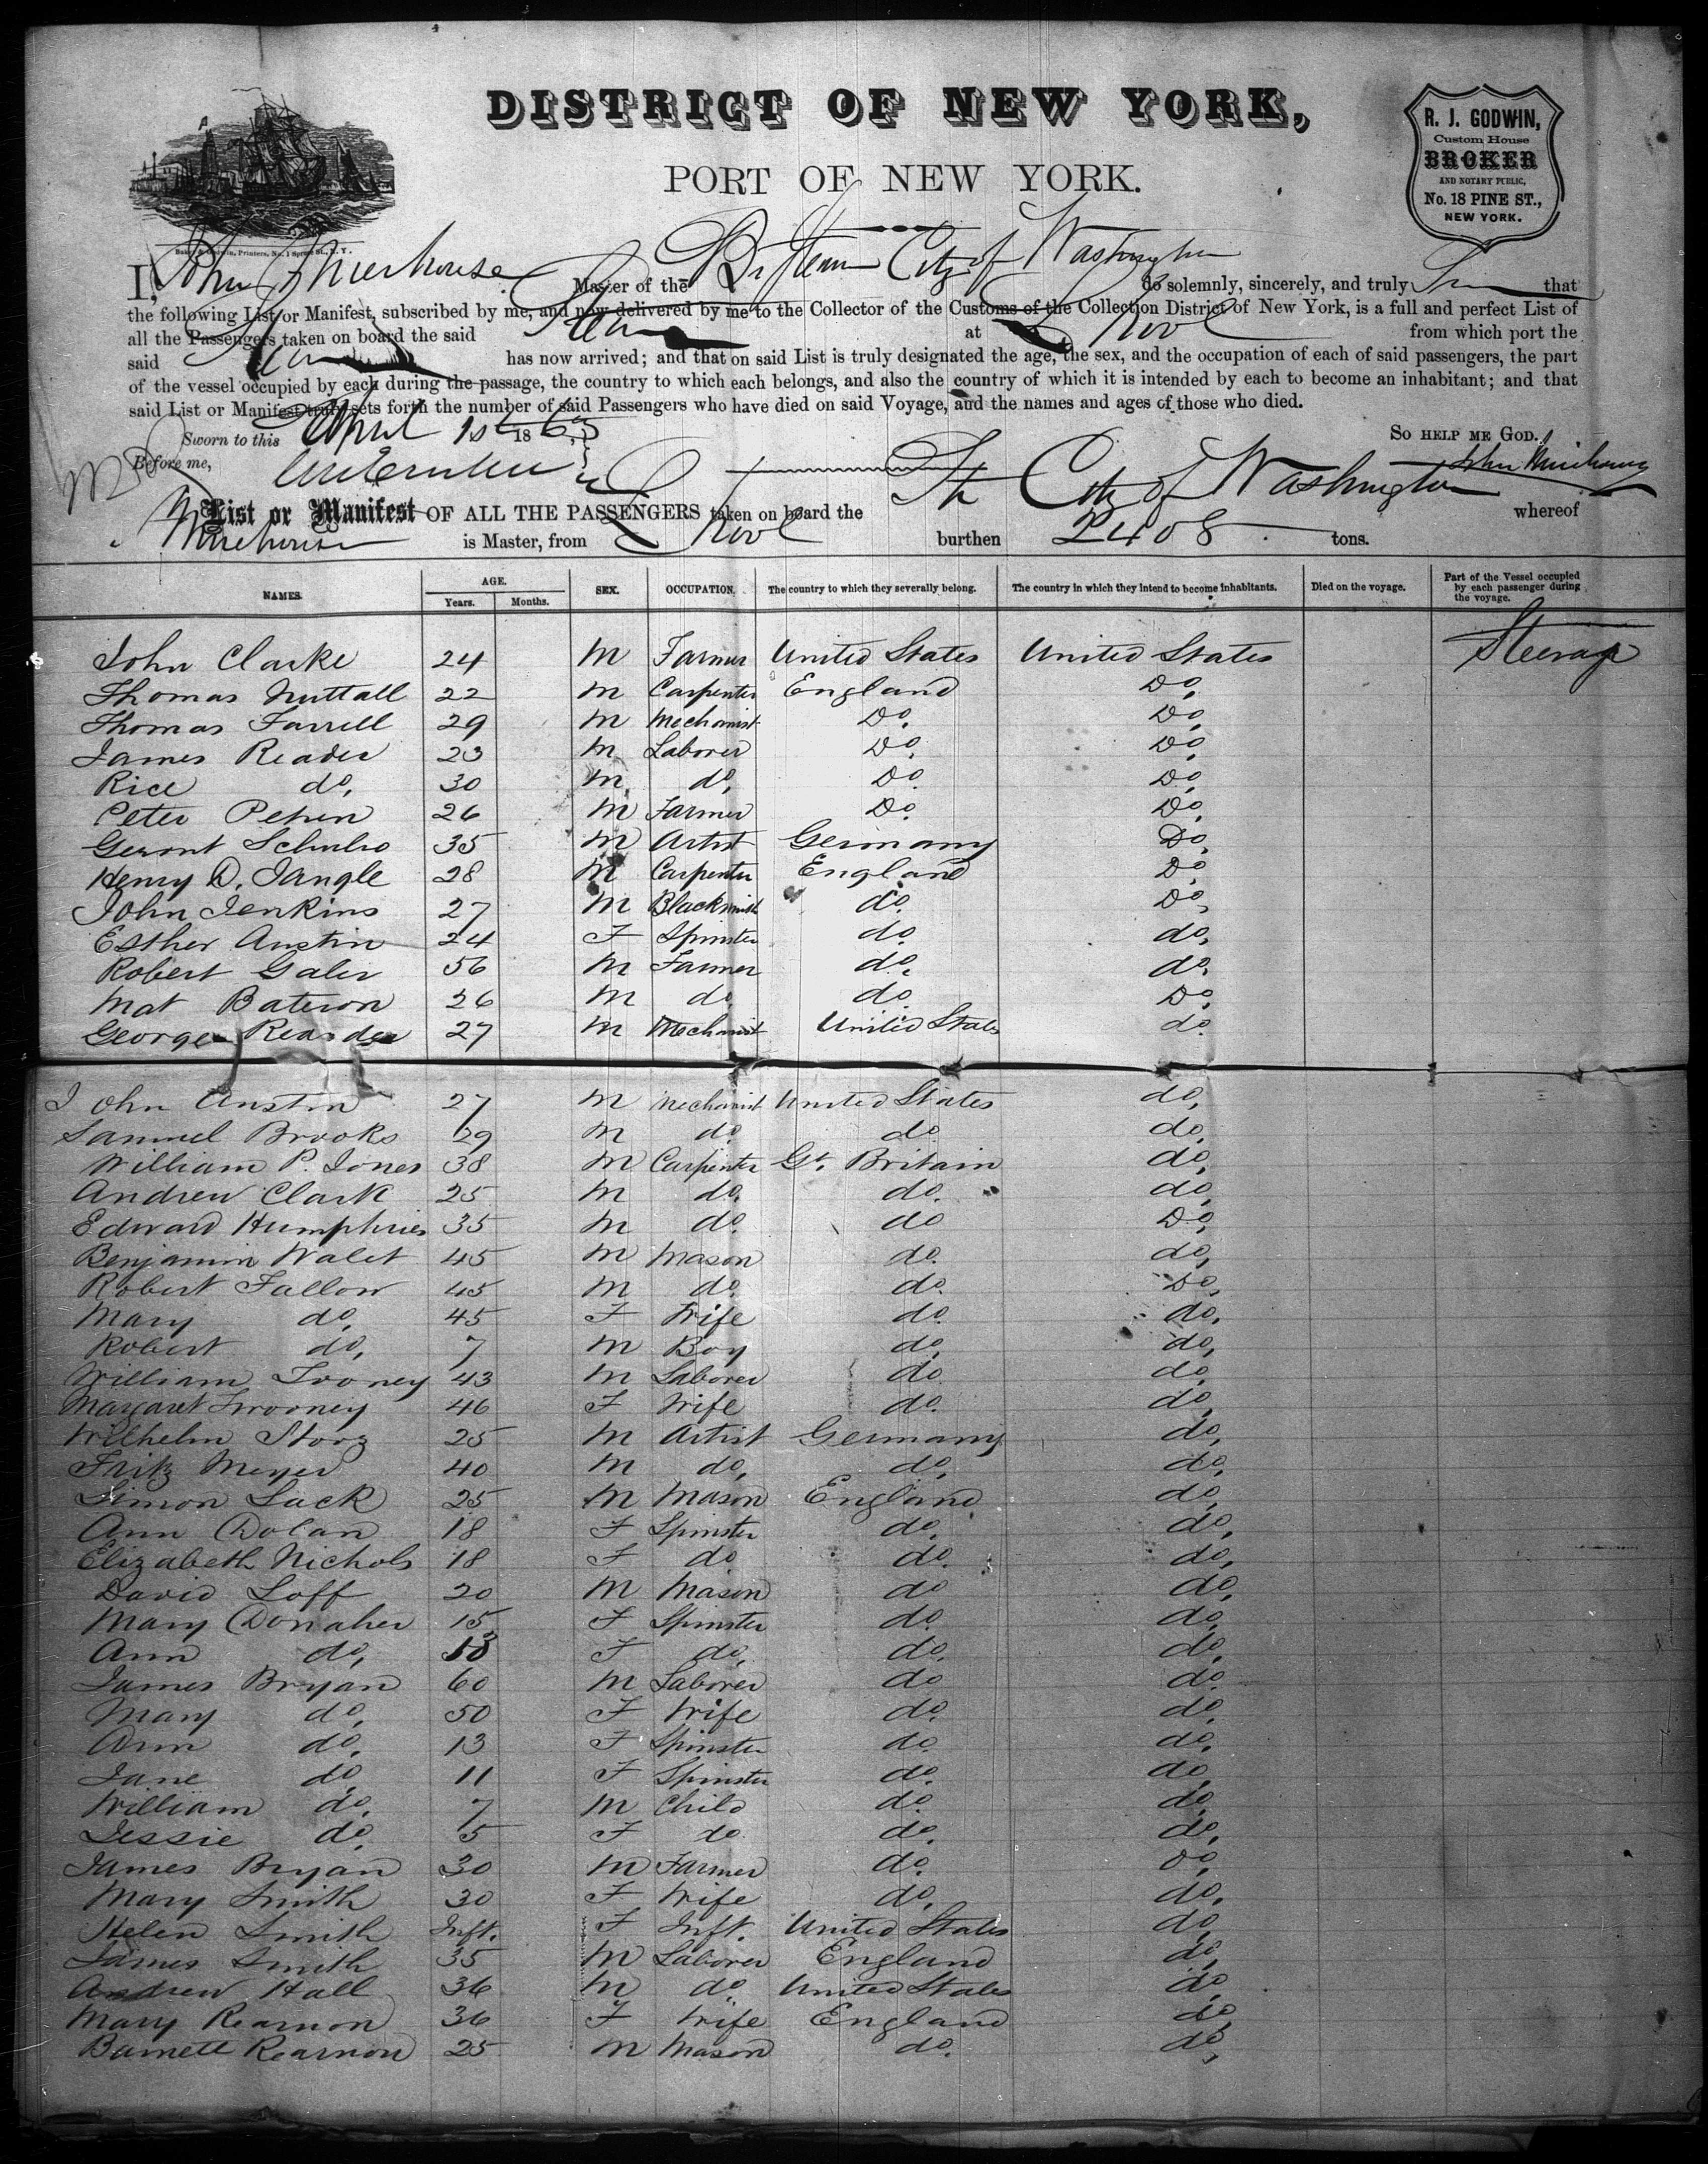 DISTRICT OF NEW YORK,
PORT OF NEW YORK.
R. J. GODWIN,
Custom House
BROKER
AND NOTARY PUBLIC,
No. 18 PINE ST.,
NEW YORK.
Printers, No. 1 Spruce St., N. Y.
I, John Mirehouse Master of the Br Steam City of Washington do solemnly, sincerely, and truly that
the following List or Manifest, subscribed by me, and now delivered by me to the Collector of the Customs of the Collection District of New York, is a full and perfect List of
all the Passengers taken on board the said Steam at L'pool from which port the
said Steam has now arrived; and that on said List is truly designated the age, the sex, and the occupation of each of said passengers, the part
of the vessel occupied by each during the passage, the country to which each belongs, and also the country of which it is intended by each to become an inhabitant; and that
said List or Manifest truly sets forth the number of said Passengers who have died on said Voyage, and the names and ages of those who died.
Sworn to this April 1st 1865
SO HELP ME GOD.
Before me,
John Mirehouse
List or Manifest OF ALL THE PASSENGERS taken on board the St City of Washington whereof
Mirehouse is Master, from L'pool burthen 2408 tons.
NAMES. AGE. Years. Months. SEX. OCCUPATION. The country to which they severally belong. The country in which they intend to become inhabitants. Died on the voyage. Part of the Vessel occupied by each passenger during the voyage.
John Clarke 24 M Farmer United States United States Steerage
Thomas Nuttall 22 M Carpenter England Do,
Thomas Farrell 29 M Mechanist Do. Do,
James Reader 23 M Laborer Do. Do,
Rice do, 30 M do, Do. Do,
Peter Pepin 26 M Farmer Do. Do,
Schulro 35 M Artist Germany Do,
Henry D. Tangle 28 M Carpenter England Do,
John Jenkins 27 M Blacksmith do. Do,
Esther Austin 24 F Spinster do. do,
Robert Galer 56 M Farmer do. do,
Mat Bateson 26 M do do Do,
George Rearden 27 M Mechanist United States do.
John Austin 27 M Mechanist United States do,
Samuel Brooks 29 M do. do do,
William P. Jones 38 M Carpenter Gt. Britain do,
Andrew Clark 25 M do. do. do,
Edward Humphries 35 M do. do Do,
Benjamin Walet 45 M Mason do. do,
Robert Fallow 45 M do. do. Do,
Mary do, 45 F Wife do. do,
Robert do, 7 M Boy do, do,
William Trooney 43 M Laborer do do,
Margaret Trooney 46 F Wife do. do,
Wilhelm Storz 25 M Artist Germany do,
Fritz Meyer 40 M do, do, do,
Simon Lack 25 M Mason England do,
Ann Dolan 18 F Spinster do, do,
Elizabeth Nichols 18 F do do. do,
David Loff 20 M Mason do do,
Mary Donaher 15 F Spinster do. do,
Ann do, 13 F do, do. do,
James Bryan 60 M Laborer do do,
Mary do, 50 F Wife do. do,
Ann do, 13 F Spinster do do,
Jane do, 11 F Spinster do. do,
William do, 7 M Child do. do,
Jessie do, 5 F do do. do,
James Bryan 30 M Farmer do. Do,
Mary Smith 30 F Wife do, do,
Helen Smith Inft. F Inft. United States do,
James Smith 35 M Laborer England do,
Andrew Hall 36 M do. United States do,
Mary Rearnon 36 F Wife England do,
Barnett Rearnon 25 M Mason do. do,